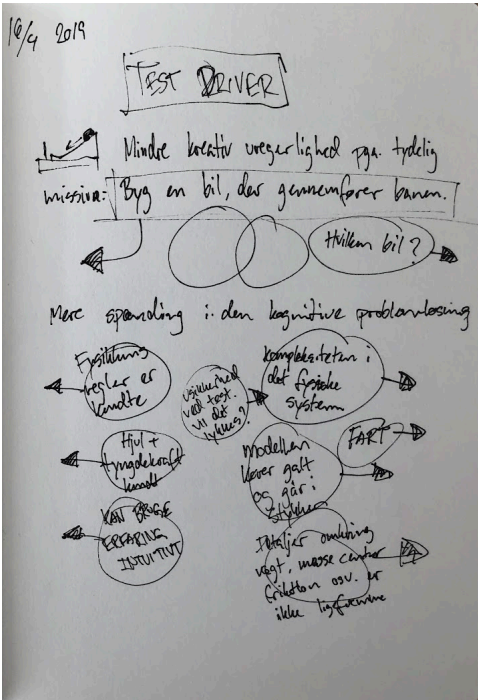 16/4 2019
TEST DRIVER
Mindre kreativ uregerlighed pga. tydelig
mission: Byg en bil, der gennemfører banen.
Hvilken bil?
Mere spænding i den kognitive problemløsning
regler er
kendte
Usikkerhed
ved test.
Vil det
lykkes?
Kompleksiteten i
det fysiske
system
Hjul +
tyngdekraft
kendt
FART
Modellen
kører galt
og går i
stykker
KAN BRUGE
ERFARING
INTUITIVT
Detaljer omkring
vægt, masse center
friktion osv. er
ikke ligefremme